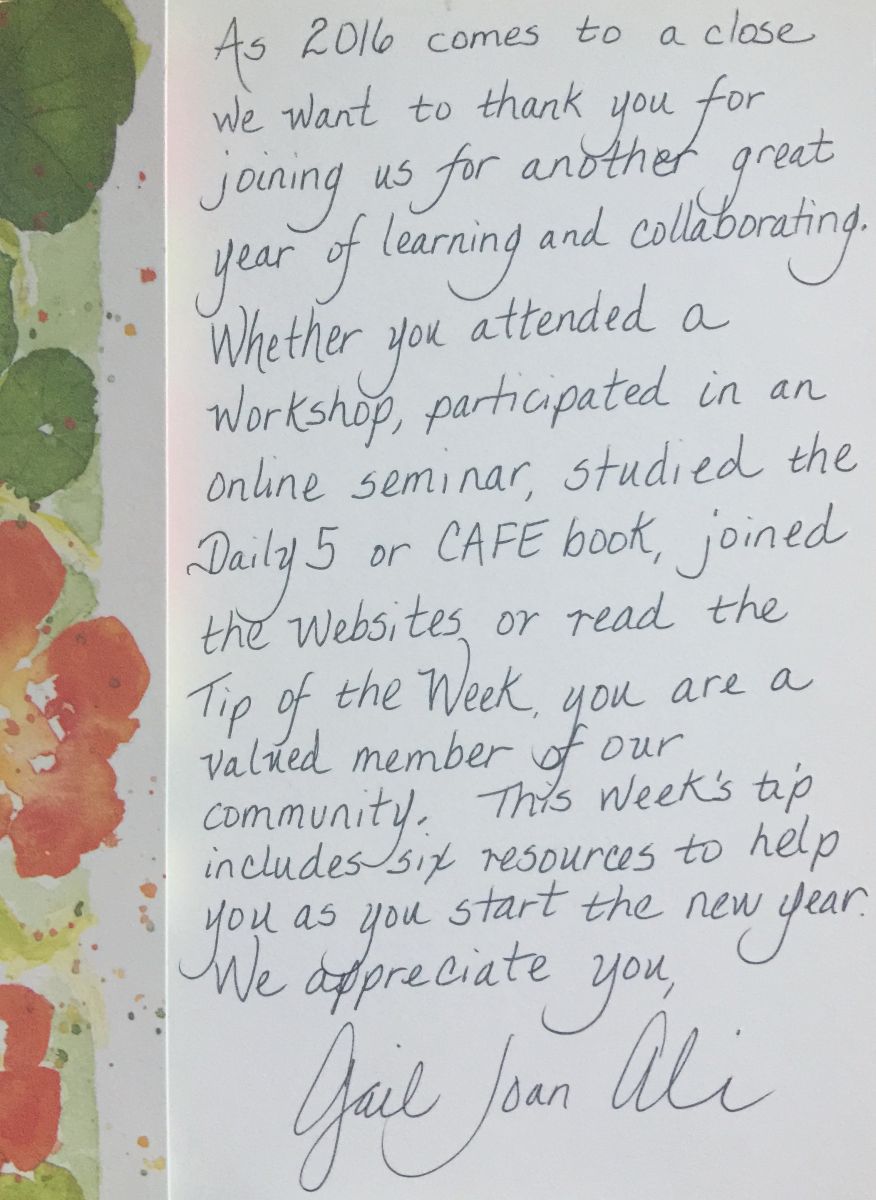 As 2016 comes to a close
we want to thank you for
joining us for another great
year of learning and collaborating.
Whether you attended a
workshop, participated in an
online seminar, studied the
Daily 5 or CAFE book, joined
the websites, or read the
Tip of the Week, you are a
valued member of our
community. This week's tip
includes six resources to help
you as you start the new year.
We appreciate you,
Gail Joan Ali